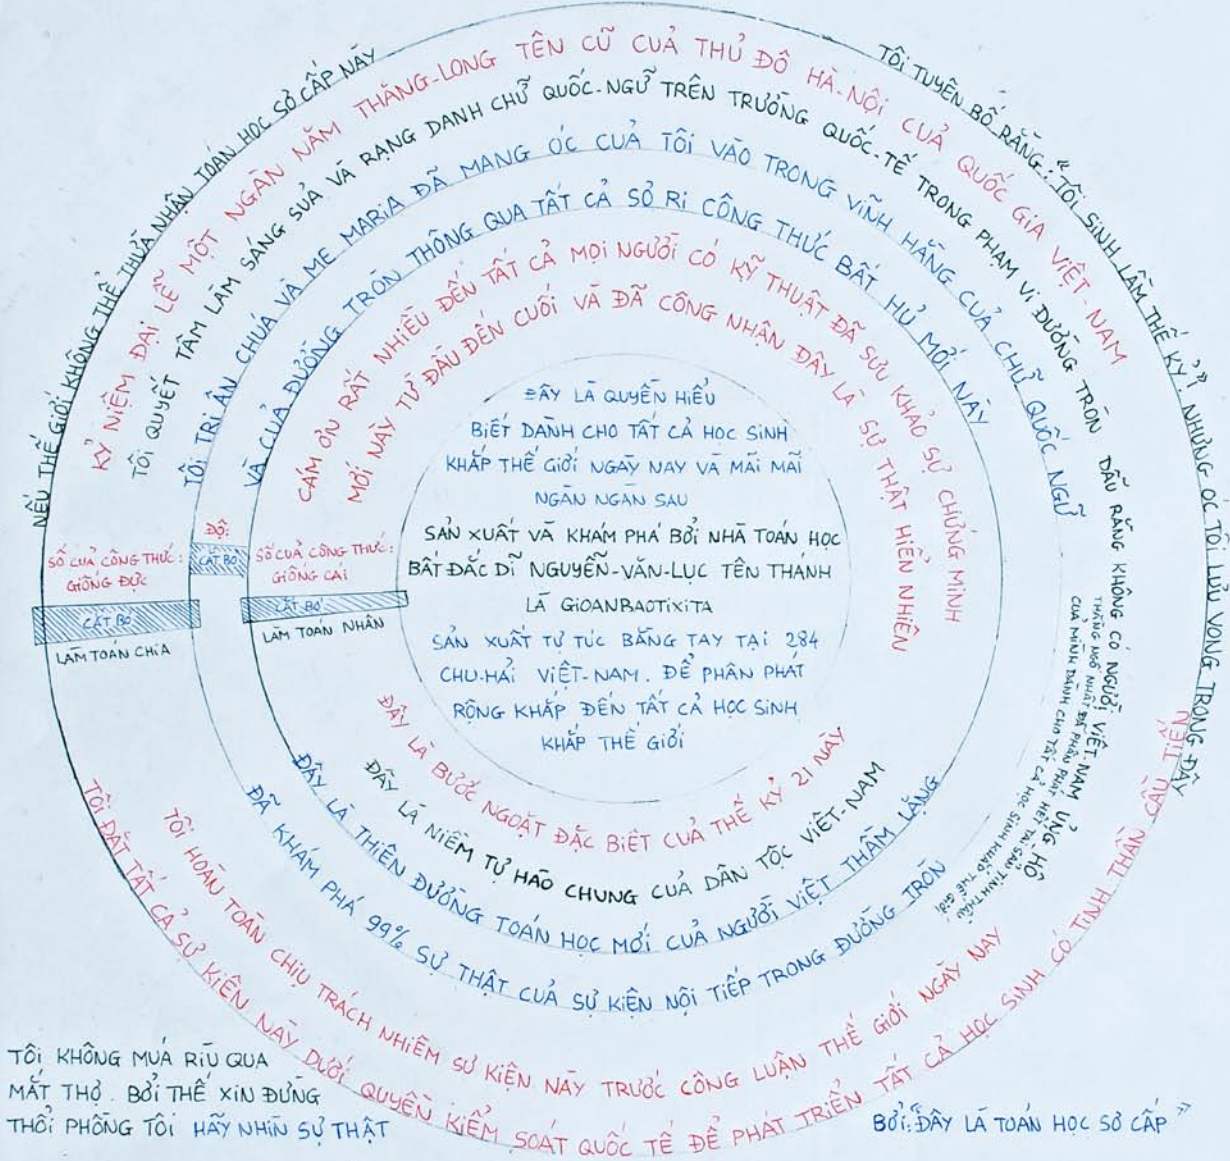 NẾU THẾ GIỚI KHÔNG THỂ THỪA NHẬN TOÁN HỌC SƠ CẤP NÀY
TÔI TUYÊN BỐ RẰNG: "TÔI SINH LẦM THẾ KỶ" NHƯNG ÓC TÔI LƯU VONG TRONG ĐÂY
KỶ NIỆM ĐẠI LỄ MỘT NGÀN NĂM THĂNG-LONG TÊN CŨ CUẢ THỦ ĐÔ HÀ-NỘI CUẢ QUỐC GIA VIỆT-NAM
TÔI QUYẾT TÂM LÀM SÁNG SUẢ VÀ RẠNG DANH CHỮ QUỐC-NGỮ TRÊN TRƯỜNG QUỐC-TẾ TRONG PHẠM VI ĐƯỜNG TRÒN DẪU RẰNG KHÔNG CÓ NGƯỜI VIỆT-NAM ỦNG-HỘ
THẰNG NGỐ NHẤT ĐÃ PHÂN PHÁT HẾT TÀI SẢN TINH THẦN
CUẢ MÌNH DÀNH CHO TẤT CẢ HỌC SINH KHẮP THẾ GIỚI
TÔI TRI ÂN CHÚA VÀ MẸ MARIA ĐÃ MANG ÓC CUẢ TÔI VÀO TRONG VĨNH HẰNG CUẢ CHỮ QUỐC NGỮ
VÀ CUẢ ĐƯỜNG TRÒN THÔNG QUA TẤT CẢ SỞ RI CÔNG THỨC BẤT HỦ MỚI NÀY
CÁM ƠN RẤT NHIỀU ĐẾN TẤT CẢ MỌI NGƯỜI CÓ KỸ THUẬT ĐÃ SƯU KHẢO SỰ CHỨNG MINH
MỚI NÀY TỪ ĐẦU ĐẾN CUỐI VÀ ĐÃ CÔNG NHẬN ĐÂY LÀ SỰ THẬT HIỂN NHIÊN
ĐÂY LÀ QUYỀN HIỂU
BIẾT DÀNH CHO TẤT CẢ HỌC SINH
KHẮP THẾ GIỚI NGÀY NAY VÀ MÃI MÃI
NGÀN NGÀN SAU
SẢN XUẤT VÀ KHÁM PHÁ BỞI NHÀ TOÁN HỌC
BẤT ĐẮC DĨ NGUYỄN-VĂN-LỤC TÊN THÁNH
LÀ GIOANBAOTIXITA
SẢN XUẤT TỰ TÚC BẰNG TAY TẠI 284
CHU-HẢI VIỆT-NAM. ĐỂ PHÂN PHÁT
RỘNG KHẮP ĐẾN TẤT CẢ HỌC SINH
KHẮP THẾ GIỚI
SỐ CUẢ CÔNG THỨC:
GIỐNG ĐỰC
CẮT BỎ
LÀM TOÁN CHIA
ĐỘ:
CẮT BỎ
SỐ CUẢ CÔNG THỨC:
GIỐNG CÁI
CẮT BỎ
LÀM TOÁN NHÂN
ĐÂY LÀ BƯỚC NGOẶT ĐẶC BIỆT CUẢ THẾ KỶ 21 NÀY
ĐÂY LÀ NIỀM TỰ HÀO CHUNG CUẢ DÂN TỘC VIỆT-NAM
ĐÂY LÀ THIÊN ĐƯỜNG TOÁN HỌC MỚI CUẢ NGƯỜI VIỆT THẦM LẶNG
ĐÃ KHÁM PHÁ 99% SỰ THẬT CUẢ SỰ KIỆN NỘI TIẾP TRONG ĐƯỜNG TRÒN
TÔI HOÀN TOÀN CHỊU TRÁCH NHIỆM SỰ KIỆN NÀY TRƯỚC CÔNG LUẬN THẾ GIỚI NGÀY NAY
TÔI ĐẶT TẤT CẢ SỰ KIỆN NÀY DƯỚI QUYỀN KIỂM SOÁT QUỐC TẾ ĐỂ PHÁT TRIỂN TẤT CẢ HỌC SINH CÓ TINH THẦN CẦU TIẾN
TÔI KHÔNG MÚA RÌU QUA
MẮT THỢ. BỞI THẾ XIN ĐỪNG
THỔI PHỒNG TÔI HÃY NHÌN SỰ THẬT
BỞI: "ĐÂY LÀ TOÁN HỌC SƠ CẤP"